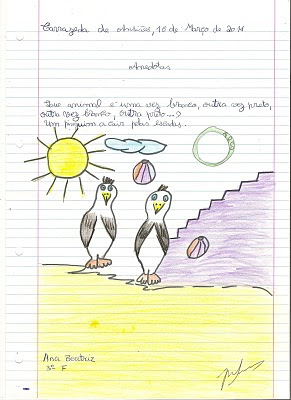 Carrazeda de Ansiães, 10 de Março de 2011
Anedotas
Que animal é uma vez branco, outra vez preto,
outra vez branco, outra preto...?
Um pinguim a cair pelas escadas.
Ana Beatriz
3º F